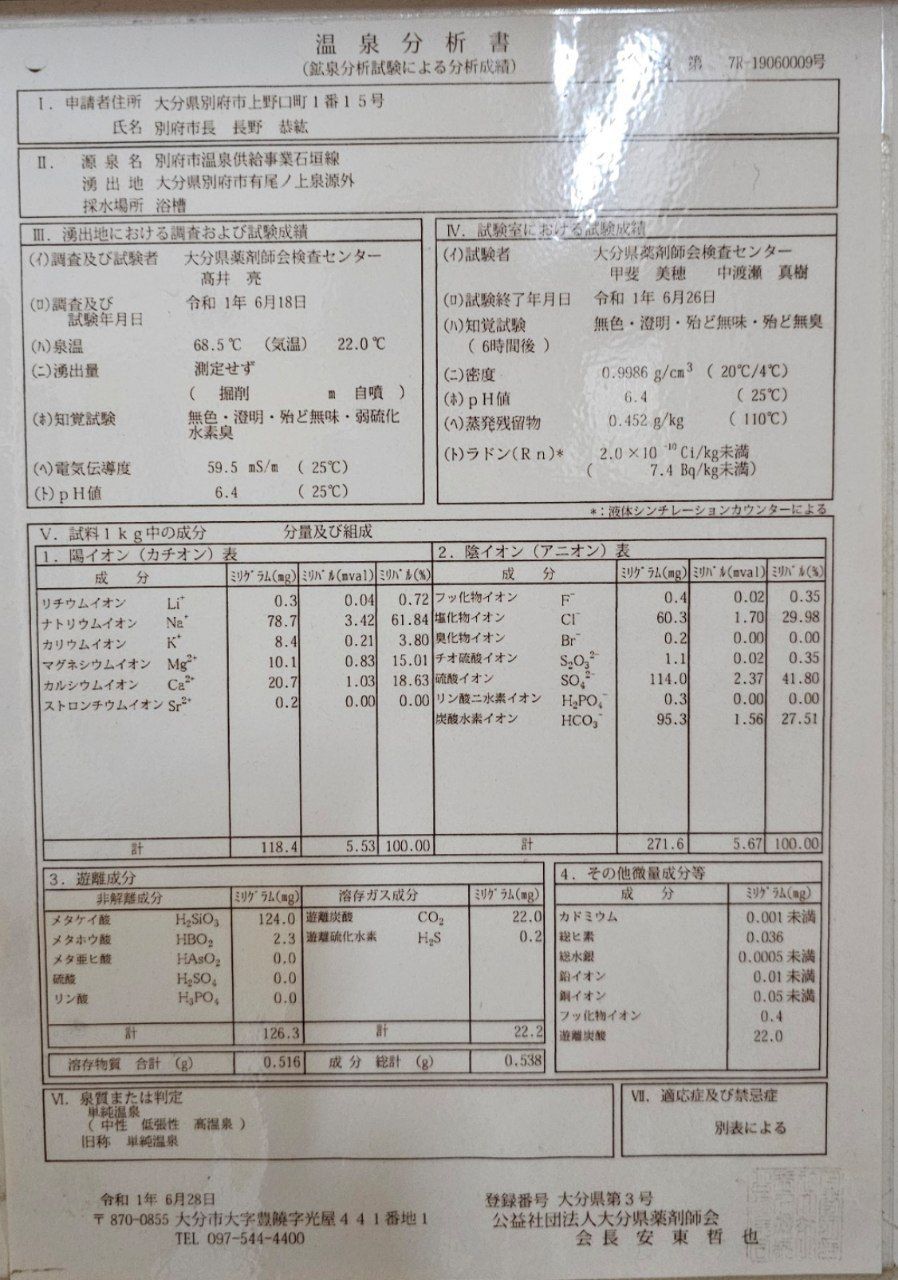 温泉分析書
(鉱泉分析試験による分析成績)
第 7R-19060009号
Ⅰ. 申請者住所 大分県別府市上野口町1番15号
氏名 別府市長 長野 恭紘
Ⅱ. 源泉名 別府市温泉供給事業石垣線
湧出地 大分県別府市有尾ノ上泉源外
採水場所 浴槽
Ⅲ. 湧出地における調査および試験成績
(イ)調査及び試験者 大分県薬剤師会検査センター
髙井 亮
(ロ)調査及び 令和 1年 6月18日
試験年月日
(ハ)泉温 68.5℃ (気温) 22.0℃
(ニ)湧出量 測定せず
( 掘削 m 自噴 )
(ホ)知覚試験 無色・澄明・殆ど無味・弱硫化
水素臭
(ヘ)電気伝導度 59.5 mS/m (25℃)
(ト)pH値 6.4 (25℃)
Ⅳ. 試験室における試験成績
(イ)試験者 大分県薬剤師会検査センター
甲斐 美穂 中渡瀬 真樹
(ロ)試験終了年月日 令和 1年 6月26日
(ハ)知覚試験 無色・澄明・殆ど無味・殆ど無臭
(6時間後)
(ニ)密度 0.9986 g/cm³ (20℃/4℃)
(ホ)pH値 6.4 (25℃)
(ヘ)蒸発残留物 0.452 g/kg (110℃)
(ト)ラドン(Rn)* 2.0×10⁻¹⁰ Ci/kg未満
( 7.4 Bq/kg未満)
*:液体シンチレーションカウンターによる
Ⅴ. 試料1kg中の成分 分量及び組成
1. 陽イオン(カチオン)表
成分 ミリグラム(mg) ミリバル(mval) ミリバル(%)
リチウムイオン Li⁺ 0.3 0.04 0.72
ナトリウムイオン Na⁺ 78.7 3.42 61.84
カリウムイオン K⁺ 8.4 0.21 3.80
マグネシウムイオン Mg²⁺ 10.1 0.83 15.01
カルシウムイオン Ca²⁺ 20.7 1.03 18.63
ストロンチウムイオン Sr²⁺ 0.2 0.00 0.00
計 118.4 5.53 100.00
2. 陰イオン(アニオン)表
成分 ミリグラム(mg) ミリバル(mval) ミリバル(%)
フッ化物イオン F⁻ 0.4 0.02 0.35
塩化物イオン Cl⁻ 60.3 1.70 29.98
臭化物イオン Br⁻ 0.2 0.00 0.00
チオ硫酸イオン S₂O₃²⁻ 1.1 0.02 0.35
硫酸イオン SO₄²⁻ 114.0 2.37 41.80
リン酸二水素イオン H₂PO₄⁻ 0.3 0.00 0.00
炭酸水素イオン HCO₃⁻ 95.3 1.56 27.51
計 271.6 5.67 100.00
3. 遊離成分
非解離成分 ミリグラム(mg)
メタケイ酸 H₂SiO₃ 124.0
メタホウ酸 HBO₂ 2.3
メタ亜ヒ酸 HAsO₂ 0.0
硫酸 H₂SO₄ 0.0
リン酸 H₃PO₄ 0.0
計 126.3
溶存ガス成分 ミリグラム(mg)
遊離炭酸 CO₂ 22.0
遊離硫化水素 H₂S 0.2
計 22.2
溶存物質 合計 (g) 0.516 成分 総計 (g) 0.538
4. その他微量成分等
成分 ミリグラム(mg)
カドミウム 0.001 未満
総ヒ素 0.036
総水銀 0.0005 未満
鉛イオン 0.01 未満
銅イオン 0.05 未満
フッ化物イオン 0.4
遊離炭酸 22.0
Ⅵ. 泉質または判定
単純温泉
( 中性 低張性 高温泉 )
旧称 単純温泉
Ⅶ. 適応症及び禁忌症
別表による
令和 1年 6月28日
〒870-0855 大分市大字豊饒字光屋441番地1
TEL 097-544-4400
登録番号 大分県第3号
公益社団法人大分県薬剤師会
会長 安東哲也